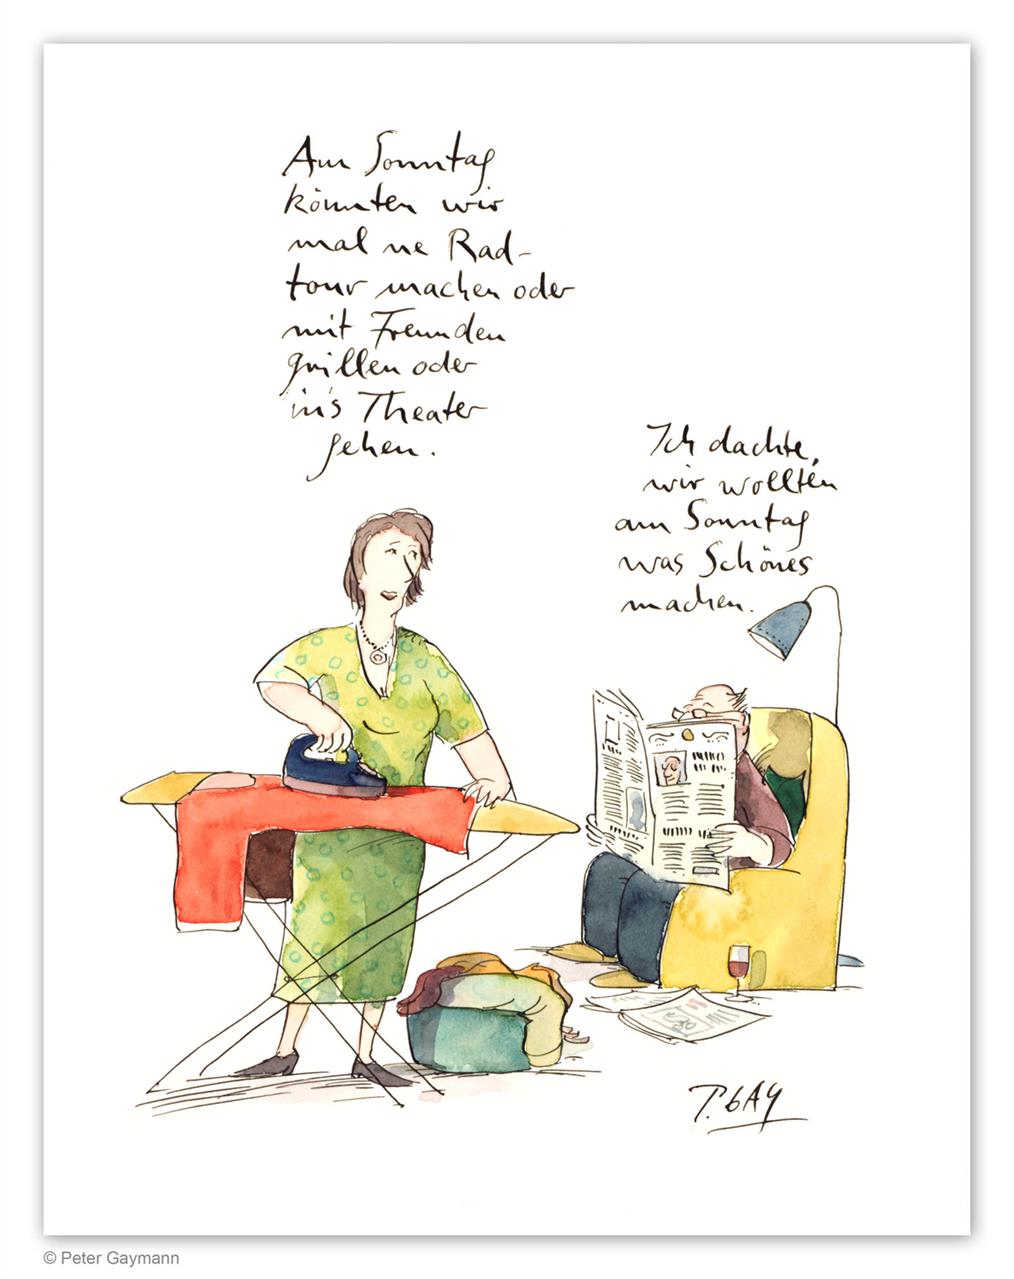 Am Sonntag
könnten wir
mal ne Rad-
tour machen oder
mit Freunden
grillen oder
in's Theater
gehen.
Ich dachte,
wir wollten
am Sonntag
was Schönes
machen.
P. GAY
© Peter Gaymann